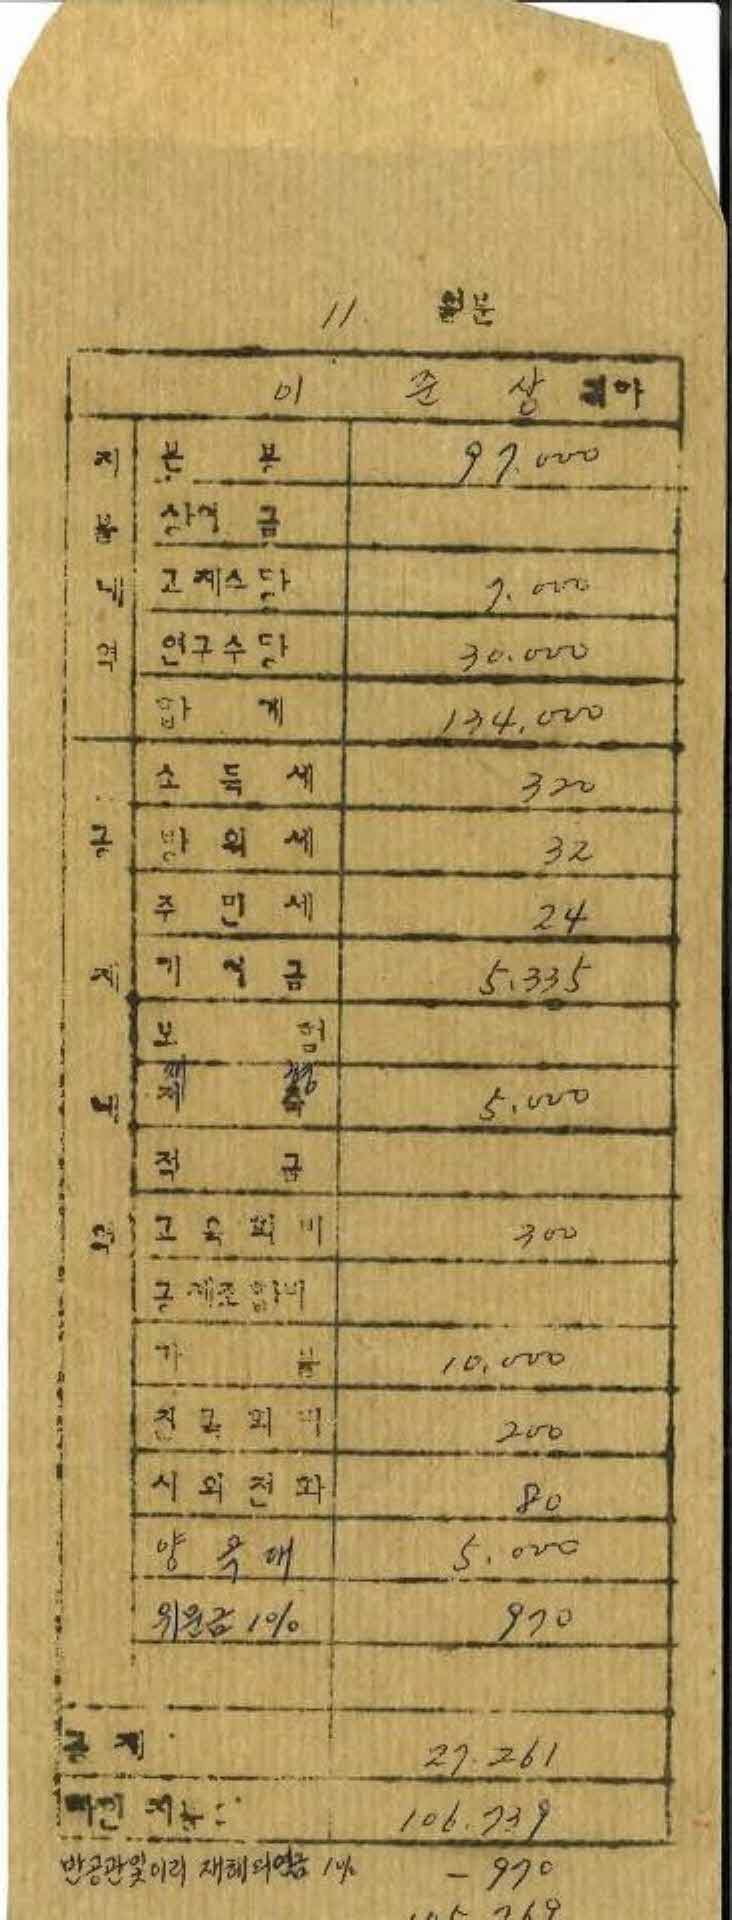 11. 월분
이 준 상 귀하
지불내역
본 봉 97.000
상여금
고제수당 7.000
연구수당 30.000
합 계 134,000
공제내역
소득세 320
방위세 32
주민세 24
기여금 5.335
보 험
5.000
적 금
교육회비 300
공제조합비
가 불 10,000
친목회비 200
시외전화 80
양복대 5.000
위문금 1% 970
공제 27.261
차인지불 106.739
반공관및이리 재해의연금 1% -970
105.769